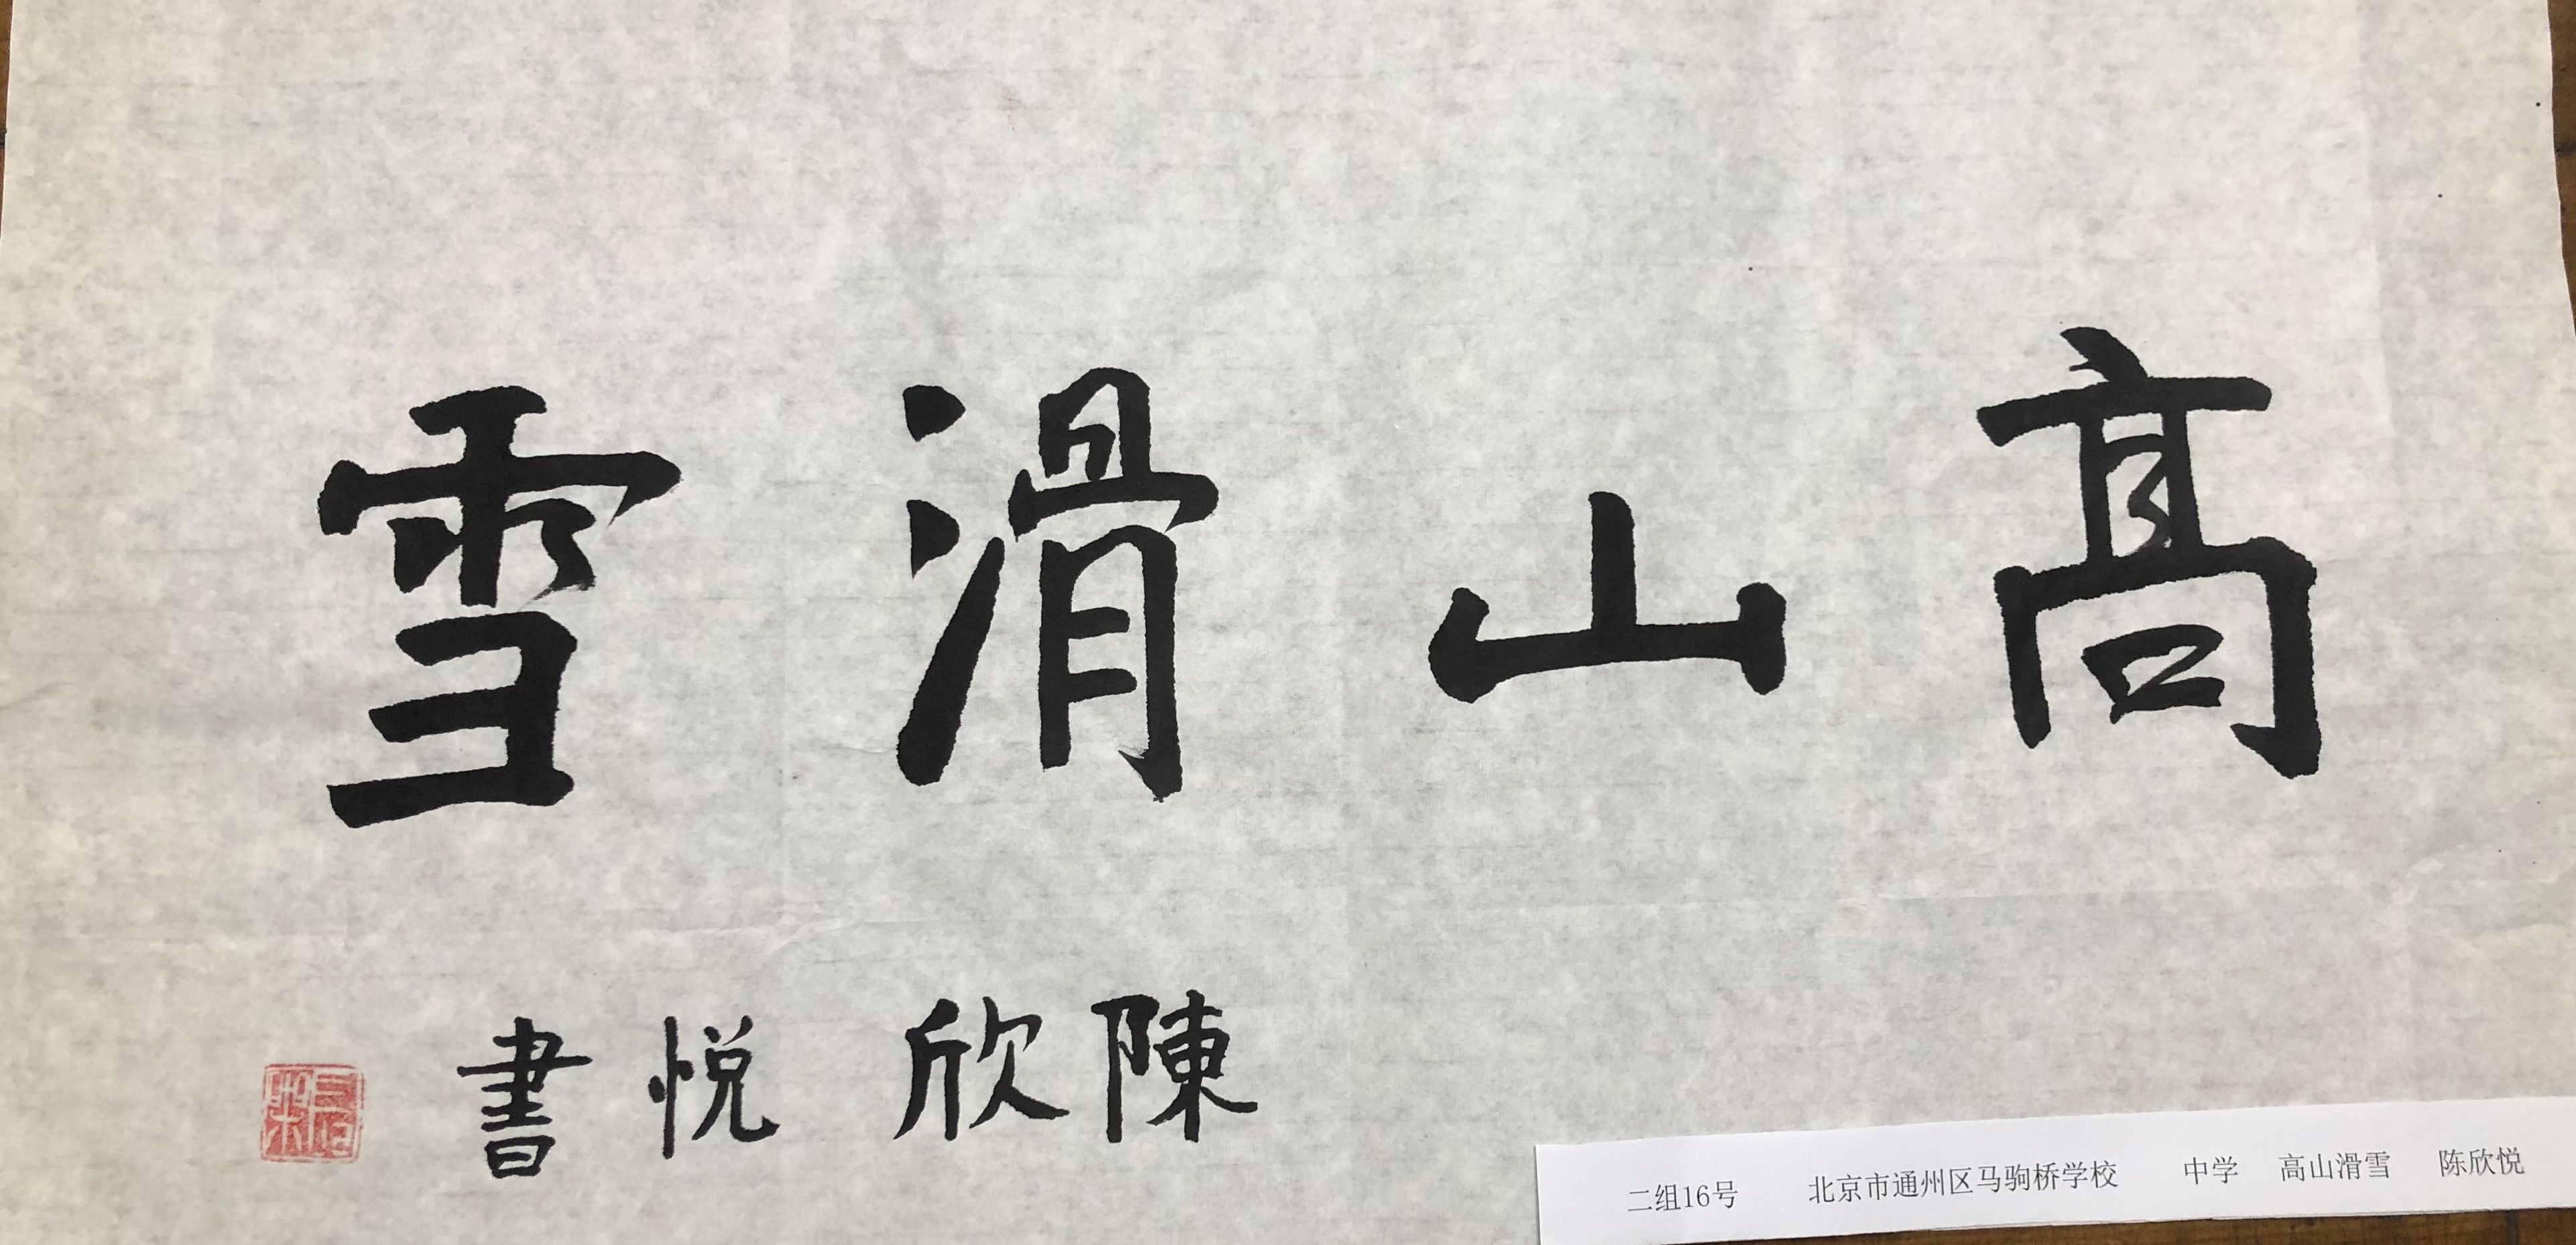 髙山滑雪
陳欣悦書
二组16号 北京市通州区马驹桥学校 中学 高山滑雪 陈欣悦